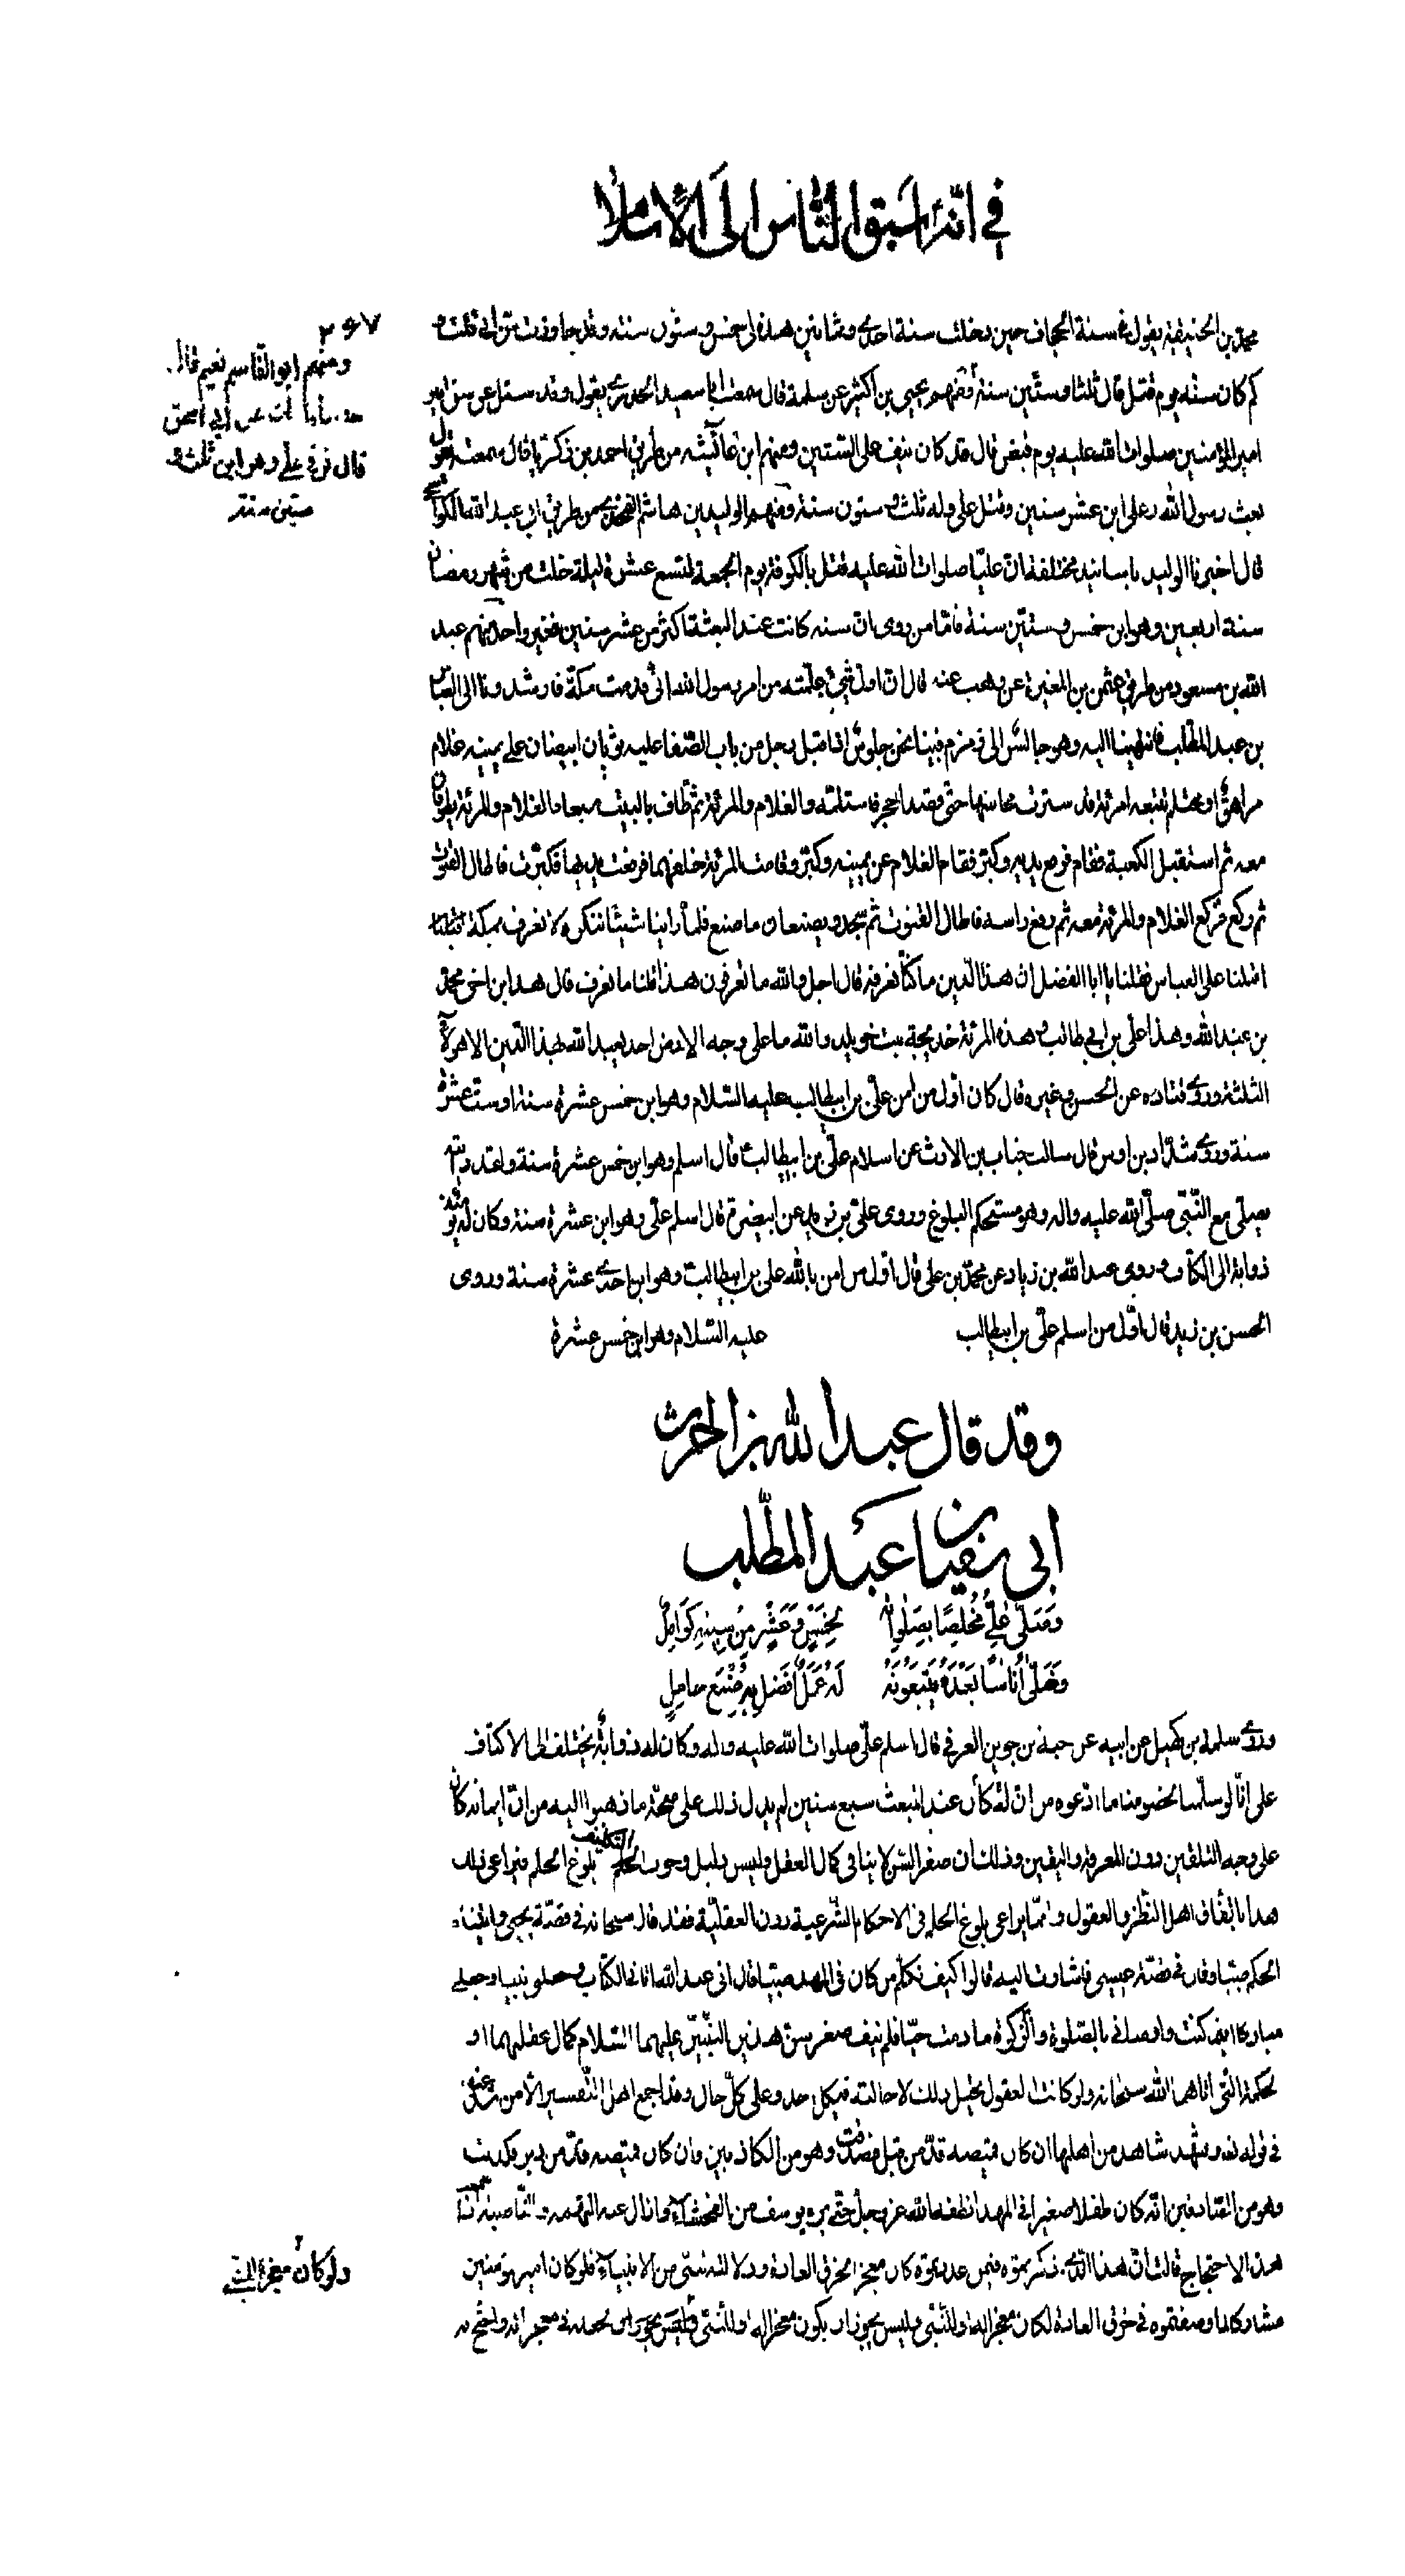 في انه اسبق الناس الى الاسلام
٣٦٧
محمد بن الحنيفية يقول في سنة الجحاف حين دخلت سنة احدى وثمانين هذه لي خمس وستون سنة وقد جاوزت سن ابي قلت و
كم كان سنه يوم قتل قال ثلثا وستين سنة ومنهم يحيى بن اكثير عن سلمة قال سمعت ابا سعيد الخدري يقول وقد سئل عن سن
امير المؤمنين صلوات الله عليه يوم قبض قال قد كان نيف على الستين ومنهم ابن عائيشه من طريق احمد بن زكريا قال سمعته يقول
بعث رسول الله وعلى ابن عشر سنين وقتل على وله ثلث وستون سنة ومنهم الوليد بن هاشم القحذمي من طريق ابي عبد الله الكواسجي
قال اخبرنا الوليد باسانيد مختلفة ان عليا صلوات الله عليه قتل بالكوفة يوم الجمعة لتسع عشرة ليلة خلت من شهر رمضان
سنة اربعين وهو ابن خمس وستين سنة فاما من روى ان سنه كانت عند البعثة اكثر من عشر سنين فغير واحد منهم عبد
الله بن مسعود من طريق عثمن بن المغيرة عن وهب عنه قال ان اول شيئ علمته من امر رسول الله اني قدمت مكة فارشدونا الى العباس
بن عبد المطلب فانتهينا اليه وهو جالس الى زمزم فبينا نحن جلوس اذ اقبل رجل من باب الصفا عليه ثوبان ابيضان على يمينه غلام
مراهق او محتلم تتبعه امرئة قد سترت محاسنها حتى قصد الحجر فاستلمه والغلام والمرئة ثم طاف بالبيت سبعا والغلام والمرئة يطوفان
معه ثم استقبل الكعبة فقام فرفع يديه وكبر فقام الغلام عن يمينه وكبر وقامت المرئة خلفهما فرفعت يديها فكبرت فاطال القنوت
ثم ركع فركع الغلام والمرئة معه ثم رفع راسه فاطال القنوت ثم سجد ويصنعان ما صنع فلما راينا شيئا ننكره لا نعرف بمكة
اقبلنا على العباس فقلنا يا ابا الفضل ان هذا الدين ما كنا نعرفه قال اجل والله ما تعرفون هذا قلنا ما نعرف قال هذا ابن اخي محمد
بن عبد الله وهذا على بن ابي طالب وهذه المرئة خديجة بنت خويلد والله ما على وجه الارض احد يعبد الله بهذا الدين الا هؤلاء
الثلثة وروى قتاده عن الحسن وغيره قال كان اول من امن على بن ابيطالب عليه السلام وهو ابن خمس عشرة سنة او ست عشرة
سنة وروى شداد بن اوس قال سالت خباب بن الارت عن اسلام على بن ابيطالب قال اسلم وهو ابن خمس عشرة سنة ولقد رايته
يصلى مع النبي صلى الله عليه واله وهو مستحكم البلوغ وروى على بن زيد عن ابي نضرة قال اسلم على وهو ابن عشرة سنة وكان له يومئذ
ذوابة الى الكتاف وروى عبد الله بن زياد عن محمد بن على قال اول من امن بالله على بن ابيطالب وهو ابن احدى عشرة سنة وروى
الحسن بن زيد قال اول من اسلم على بن ابيطالب عليه السلام وهو ابن خمس عشرة
وقد قال عبد الله بن الحرث
ابي سفيان بن عبد المطلب
وصلى علي مخلصا بصلوته لخمس وعشر من سنيه كوامل
وخلى اناسا بعده يتبعونه له عمل افضل به صنع عامل
وروى سلمة بن كهيل عن ابيه عن حبة بن جوين العرني قال اسلم على صلوات الله عليه واله وكان له ذوابة يختلف الى الاكتاف
على انا لو سلمنا لخصومنا ما ادعوه من ان له كان عند المبعث سبع سنين لم يدل ذلك على صحة ما ذهبوا اليه من ان ايمانه كان
على وجه التلقين دون المعرفة واليقين وذلك ان صغر السن لا ينافي كمال العقل وليس دليل وجوب التكليف بلوغ الحلم فيراعى ذلك
هذا باتفاق اهل النظر والعقول وانما يراعى بلوغ الحلم في الاحكام الشرعية دون العقلية فقد قال سبحانه في قصة يحيى واتيناه
الحكم صبيا وقال في قصة عيسى فاشارت اليه قالوا كيف نكلم من كان في المهد صبيا قال اني عبد الله اتاني الكتاب وجعلني نبيا وجعلني
مباركا اين كنت واوصاني بالصلوة والزكوة ما دمت حيا فلم ينف صغر سن هذين النبيين عليهما السلام كمال عقليهما او
لحكمة التي اتاهما الله سبحانه ولو كانت العقول تحيل ذلك لاحالته في كل حد وعلى كل حال وقد اجمع اهل التفسير الا من شذ عنهم
في قوله تعه وشهد شاهد من اهلها ان كان قميصه قد من قبل فصدقت وهو من الكاذبين وان كان قميصه قد من دبر فكذبت
وهو من الصادقين انه كان طفلا صغيرا في المهد انطقه الله عز وجل حتى برء يوسف من الفحشاء وازال عنه التهمة والناصبة
هذا الاحتجاج قالت ان هذا الذي ذكرتموه فيمن عددتموه كان معجزا لخرق العادة ودلالة لنبي من الانبياء فلو كان امير المؤمنين
مشاركا لما وصفتموه في خرق العادة لكان معجزا له او للنبي وليس يجوز ان يكون معجزا له ولو كان معجزة للنبي لجعله في معجزاته واحتج به
ومنهم ابو القاسم نعيم قال
عن ابي اسحق
قال توفى علي وهو ابن ثلث و
ستين سنة
ولو كان معجزة للنبي